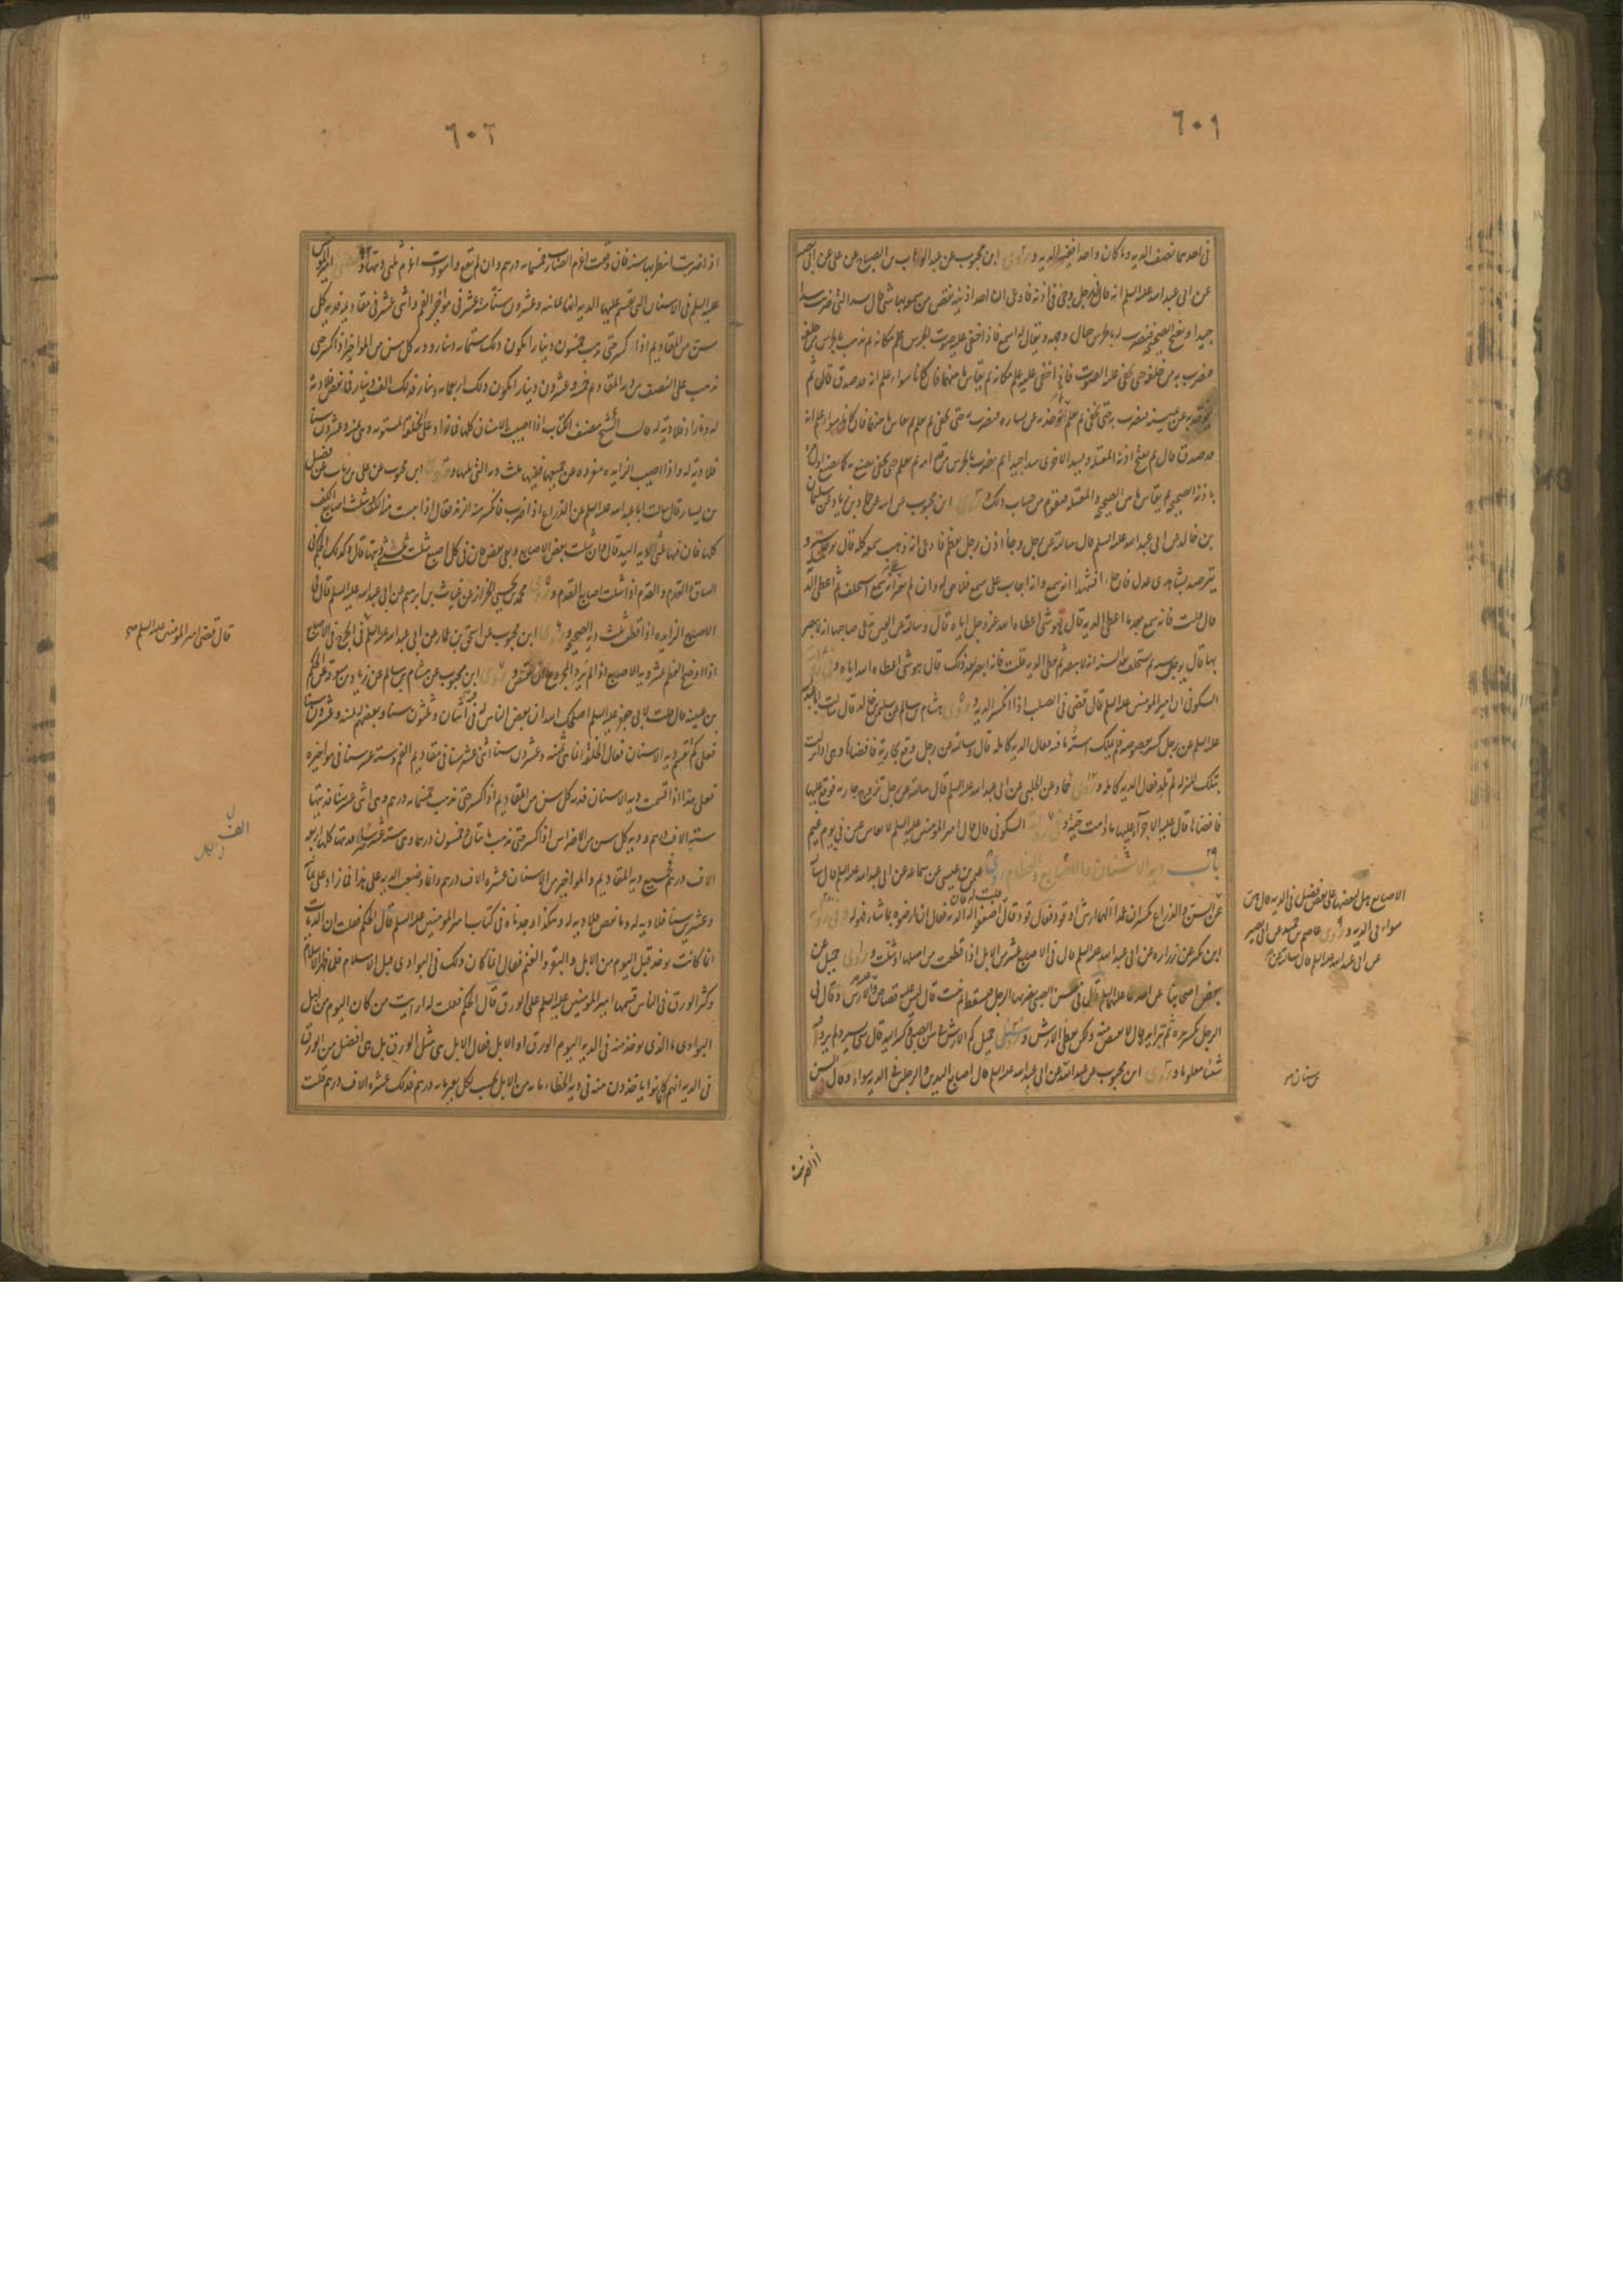 ٦٠١
في احدهما نصف الديه وما كان واحدا ففيه الديه و روى ابن محبوب عن عبد الوهاب بن الصباح عن على عن ابى بصير
عن ابى عبد الله عليه السلم انه قال في رجل وجئ في اذنه فادعى ان احد اذنيه نقص من سمعها شئ قال تسد التي ضربت سدا
جيدا و يفتح الصحيحة فيضرب له بالجرس حيال وجهه ويقال له اسمع فاذا خفي عليه صوت الجرس علم مكانه ثم يذهب بالجرس من خلفه
فيضرب به من خلفه حتى يخفى عليه الصوت فاذا خفى عليه علم مكانه ثم يقاس ما بينهما فان كانا سواء علم انه قد صدق قال ثم
يؤخذ به عن يمينه فيضرب به حتى يخفى ثم يعلم ثم يؤخذ به عن يساره فيضرب به حتى يخفى ثم يعلم ثم يقاس ما بينهما فان كانا سواء علم انه
قد صدق قال ثم يفتح اذنه المعتلة ويسد الاخرى سدا جيدا ثم يضرب بالجرس من قدامه ثم يعلم حتى يخفى يصنع به كما يصنع اولا
باذنه الصحيحه ثم يقاس ما بين الصحيحه والمعتله فيقوم من حساب ذلك و روى ابن محبوب عن ابيه عن حماد بن زياد عن سليمان
بن خالد عن ابى عبد الله عليه السلم قال سالته عن رجل وجا اذن رجل بعظم فادعى انه ذهب سمعه كله قال يوجل سنه و
يترصد بشاهدى عدل فان جاءا فشهدا انه سمع وانه اجاب على سمع فلا حق له وان لم يعثر انه يسمع استحلف ثم اعطى الدية
قال قلت فانه سمع بعد ما اعطى الديه قال هو شئ اعطاه الله عز وجل اياه قال وسالته عن العين يدعى صاحبها انه لا يبصر
بها قال يوجل سنه ثم يستحلف بعد السنه انه لا يبصر ثم يعطى الديه قلت فانه ابصر بعد ذلك قال هو شئ اعطاه الله اياه و في رواية
السكونى ان امير المومنين عليه السلم قال قضى في الصلب اذا انكسر الديه و روى هشام بن سالم عن سليمن بن خالد قال سالت ابا عبد الله
عليه السلم عن رجل كسر بعصوصه فلم يملك استه ما فيه فقال الديه كامله قال وسالته عن رجل وقع بجارية فافضاها وهى اذا نزلت
بتلك المنزله لم تلد فقال الديه كامله و روى حماد عن الحلبي عن ابى عبد الله عليه السلم قال سالته عن رجل تزوج جارية فوقع عليها
فافضاها قال عليه الاجراء عليها ما دامت حية و في رواية السكونى قال قال امير المومنين عليه السلم لا يقاس عين في يوم غيم
باب دية الاسنان والاصابع والعظام روى عثمن بن عيسى عن سماعه عن ابى عبد الله عليه السلم قال سالته
عن السن والذراع يكسران عمدا الهما ارش او قود فقال قود قال قلت له فان اضعفوا له الديه فقال ان ارضوه بما شاء فهو له و في رواية
ابن بكير عن زراره عن ابى عبد الله عليه السلم قال في الاصبع عشر من الابل اذا قطعت من اصلها او شلت و روى جميل عن
بعض اصحابنا عن احدهما عليهما السلم قال في سن الصبي يضربها الرجل فيسقط ثم تنبت قال ليس عليه قصاص وعليه الارش وقال في
الرجل يكسر يده ثم تبرا يده قال لا يقتص منه ولكن يعطى الارش و سئل جميل كم الارش في سن الصبي وكسر اليد قال شئ يسير ولم يرو فيه
شيئا معلوما و روى ابن محبوب عن عبد الله عن ابى عبد الله عليه السلم قال اصابع اليدين والرجلين في الديه سواء وقال السن
الاصابع هل لبعضها على بعض فضل في الديه قال هن
سواء في الديه و روى عاصم بن حميد عن ابى بصير
عن ابى عبد الله عليه السلم قال سالته عن
بن سنان
اذا ضربت
٦٠٢
اذا ضربت انتظر بها سنه فان وقعت اغرم الضارب خمسمايه درهم وان لم تقع واسودت اغرم ثلثى ديتها و قضى امير المومنين
عليه السلم في الاسنان التي تقسم عليها الديه انها ثمانيه وعشرون ستة عشر في مواخير الفم واثنى عشر في مقاديمه فديه كل
سن من المقاديم اذا كسر حتى يذهب خمسون دينارا يكون ذلك ستمايه دينار وديه كل سن من المواخير اذا كسر حتى
تذهب على النصف من ديه المقاديم خمسه وعشرون دينارا يكون ذلك اربعمايه دينار فذلك الف دينار فما نقص فلا دية
له وما زاد فلا دية له قال الشيخ مصنف الكتاب اذا اصيبت الاسنان كلها فما زاد على الخلقه المستويه وهى ثمنيه وعشرون سنا
فلا ديه له واذا اصيب الزايده مفرده عن جميعها ففيها ثلث ديه التي تليها و روى ابن محبوب عن على بن رئاب عن فضيل
بن يسار قال سالت ابا عبد الله عليه السلم عن الذراع اذا ضرب فانكسر منه الزند فقال اذا يبست منه الكف فشلت اصابع الكف
كلها فان فيها ثلثى الديه دية اليد قال وان شلت بعض الاصابع وبقى بعض فان في كل اصبع شلت ثلثى ديتها قال وكذلك الحكم في
الساق والقدم اذا شلت اصابع القدم و روى محمد بن يحيى الخزاز عن غياث بن ابرهيم عن ابى عبد الله عليه السلم قال في
الاصبع الزايده اذا قطعت ثلث دية الصحيحه و روى ابن محبوب عن اسحق بن عمار عن ابى عبد الله عليه السلم في الجرح في الاصابع
اذا اوضح العظم عشر ديه الاصبع اذا لم يرد المجروح ان يقتص و روى ابن محبوب عن هشام بن سالم عن زياد بن سوقه عن الحكم
بن عيينه قال قلت لابي جعفر عليه السلم اصلحك الله ان بعض الناس له في فيه اثنان وثلثون سنا وبعضهم له ثمنيه وعشرون سنا
فعلى كم تقسم ديه الاسنان فقال الخلقه انما هى ثمنيه وعشرون سنا اثنى عشر سنا في مقاديم الفم وسته عشر سنا في مواخيره
فعلى هذا اذا قسمت ديه الاسنان فديه كل سن من المقاديم اذا كسر حتى تذهب خمسمايه درهم وهى اثنى عشر سنا فديتها
ستة الاف درهم وديه كل سن من الاضراس اذا كسر حتى تذهب مايتان وخمسون درهما وهى سته عشر سنا فديتها كلها اربعه
الاف درهم فجميع دية المقاديم والمواخير من الاسنان عشره الاف درهم وانما وضعت الديه على هذا فما زاد على ثمانيه
وعشرين سنا فلا ديه له وما نقص فلا ديه له وهكذا وجدناه في كتاب امير المومنين عليه السلم قال الحكم فقلت ان الديات
انما كانت توخذ قبل اليوم من الابل والبقر والغنم فقال انما كان ذلك في البوادى قبل الاسلام فلما ظهر الاسلام
وكثر الورق في الناس قسمها امير المومنين عليه السلم على الورق قال الحكم فقلت له ارايت من كان اليوم من اهل
البوادى ما الذى يوخذ منه في الديه اليوم الورق او الابل فقال الابل هى مثل الورق بل هى افضل من الورق
في الديه انهم كانوا ياخذون منه في ديه الخطاء مايه من الابل يحسب بكل بعير مايه درهم فذلك عشره الاف درهم قلت
قال قضى امير المومنين عليه السلم